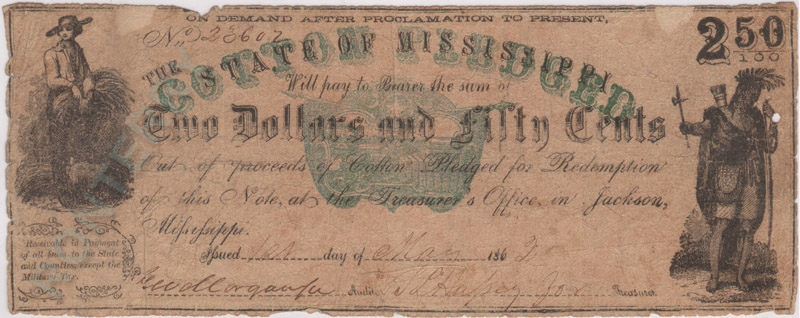 ON DEMAND AFTER PROCLAMATION TO PRESENT,
No. D23602
2 50/100
THE STATE OF MISSISSIPPI
COTTON PLEDGED
Will pay to Bearer the sum of
Two Dollars and Fifty Cents
Out of proceeds of Cotton Pledged for Redemption
of this Note, at the Treasurer's Office, in Jackson,
Mississippi.
Issued 1st day of May 186
Receivable in Payment
of all dues to the State
and Counties, except the
Military Tax.
Auditor
Treasurer